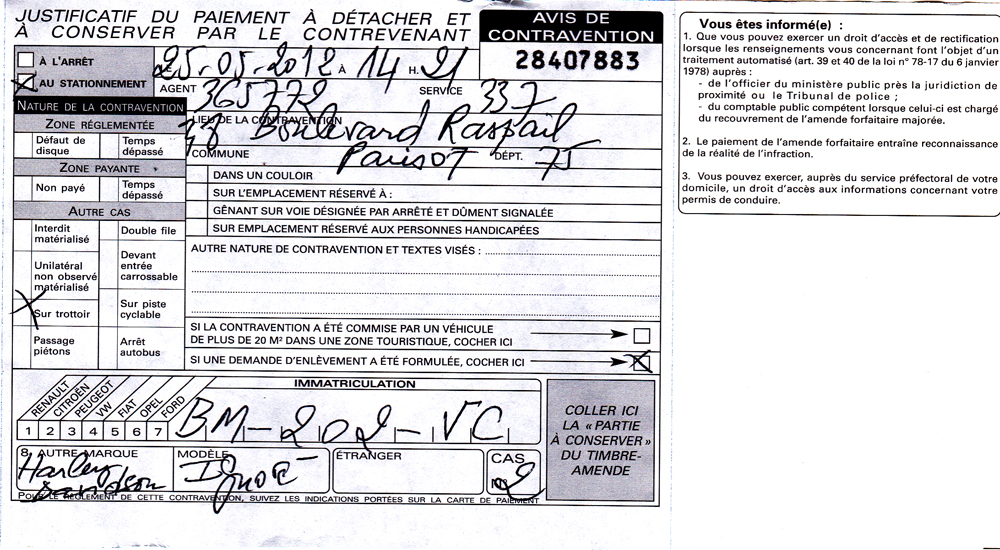 JUSTIFICATIF DU PAIEMENT À DÉTACHER ET
À CONSERVER PAR LE CONTREVENANT
AVIS DE
CONTRAVENTION
28407883
À L'ARRÊT
AU STATIONNEMENT
LE 25-05-2012 À 14 H. 21
AGENT 365772 SERVICE 337
NATURE DE LA CONTRAVENTION
ZONE RÉGLEMENTÉE
Défaut de
disque
Temps
dépassé
ZONE PAYANTE
Non payé
Temps
dépassé
AUTRE CAS
Interdit
matérialisé
Double file
Unilatéral
non observé
matérialisé
Devant
entrée
carrossable
Sur trottoir
Sur piste
cyclable
Passage
piétons
Arrêt
autobus
LIEU DE LA CONTRAVENTION
Boulevard Raspail
COMMUNE Paris 07 DÉPT. 75
DANS UN COULOIR
SUR L'EMPLACEMENT RÉSERVÉ À :
GÊNANT SUR VOIE DÉSIGNÉE PAR ARRÊTÉ ET DÛMENT SIGNALÉE
SUR EMPLACEMENT RÉSERVÉ AUX PERSONNES HANDICAPÉES
AUTRE NATURE DE CONTRAVENTION ET TEXTES VISÉS :
SI LA CONTRAVENTION A ÉTÉ COMMISE PAR UN VÉHICULE
DE PLUS DE 20 M² DANS UNE ZONE TOURISTIQUE, COCHER ICI
SI UNE DEMANDE D'ENLÈVEMENT A ÉTÉ FORMULÉE, COCHER ICI
RENAULT
CITROËN
PEUGEOT
VW
FIAT
OPEL
FORD
1 2 3 4 5 6 7
IMMATRICULATION
BM-202-VC
8. AUTRE MARQUE
Harley
Davidson
MODÈLE
Ignoré
ÉTRANGER
CAS
N° 2
COLLER ICI
LA « PARTIE
À CONSERVER »
DU TIMBRE-
AMENDE
POUR LE RÈGLEMENT DE CETTE CONTRAVENTION, SUIVEZ LES INDICATIONS PORTÉES SUR LA CARTE DE PAIEMENT
Vous êtes informé(e) :
1. Que vous pouvez exercer un droit d'accès et de rectification
lorsque les renseignements vous concernant font l'objet d'un
traitement automatisé (art. 39 et 40 de la loi n° 78-17 du 6 janvier
1978) auprès :
- de l'officier du ministère public près la juridiction de
proximité ou le Tribunal de police ;
- du comptable public compétent lorsque celui-ci est chargé
du recouvrement de l'amende forfaitaire majorée.
2. Le paiement de l'amende forfaitaire entraîne reconnaissance
de la réalité de l'infraction.
3. Vous pouvez exercer, auprès du service préfectoral de votre
domicile, un droit d'accès aux informations concernant votre
permis de conduire.